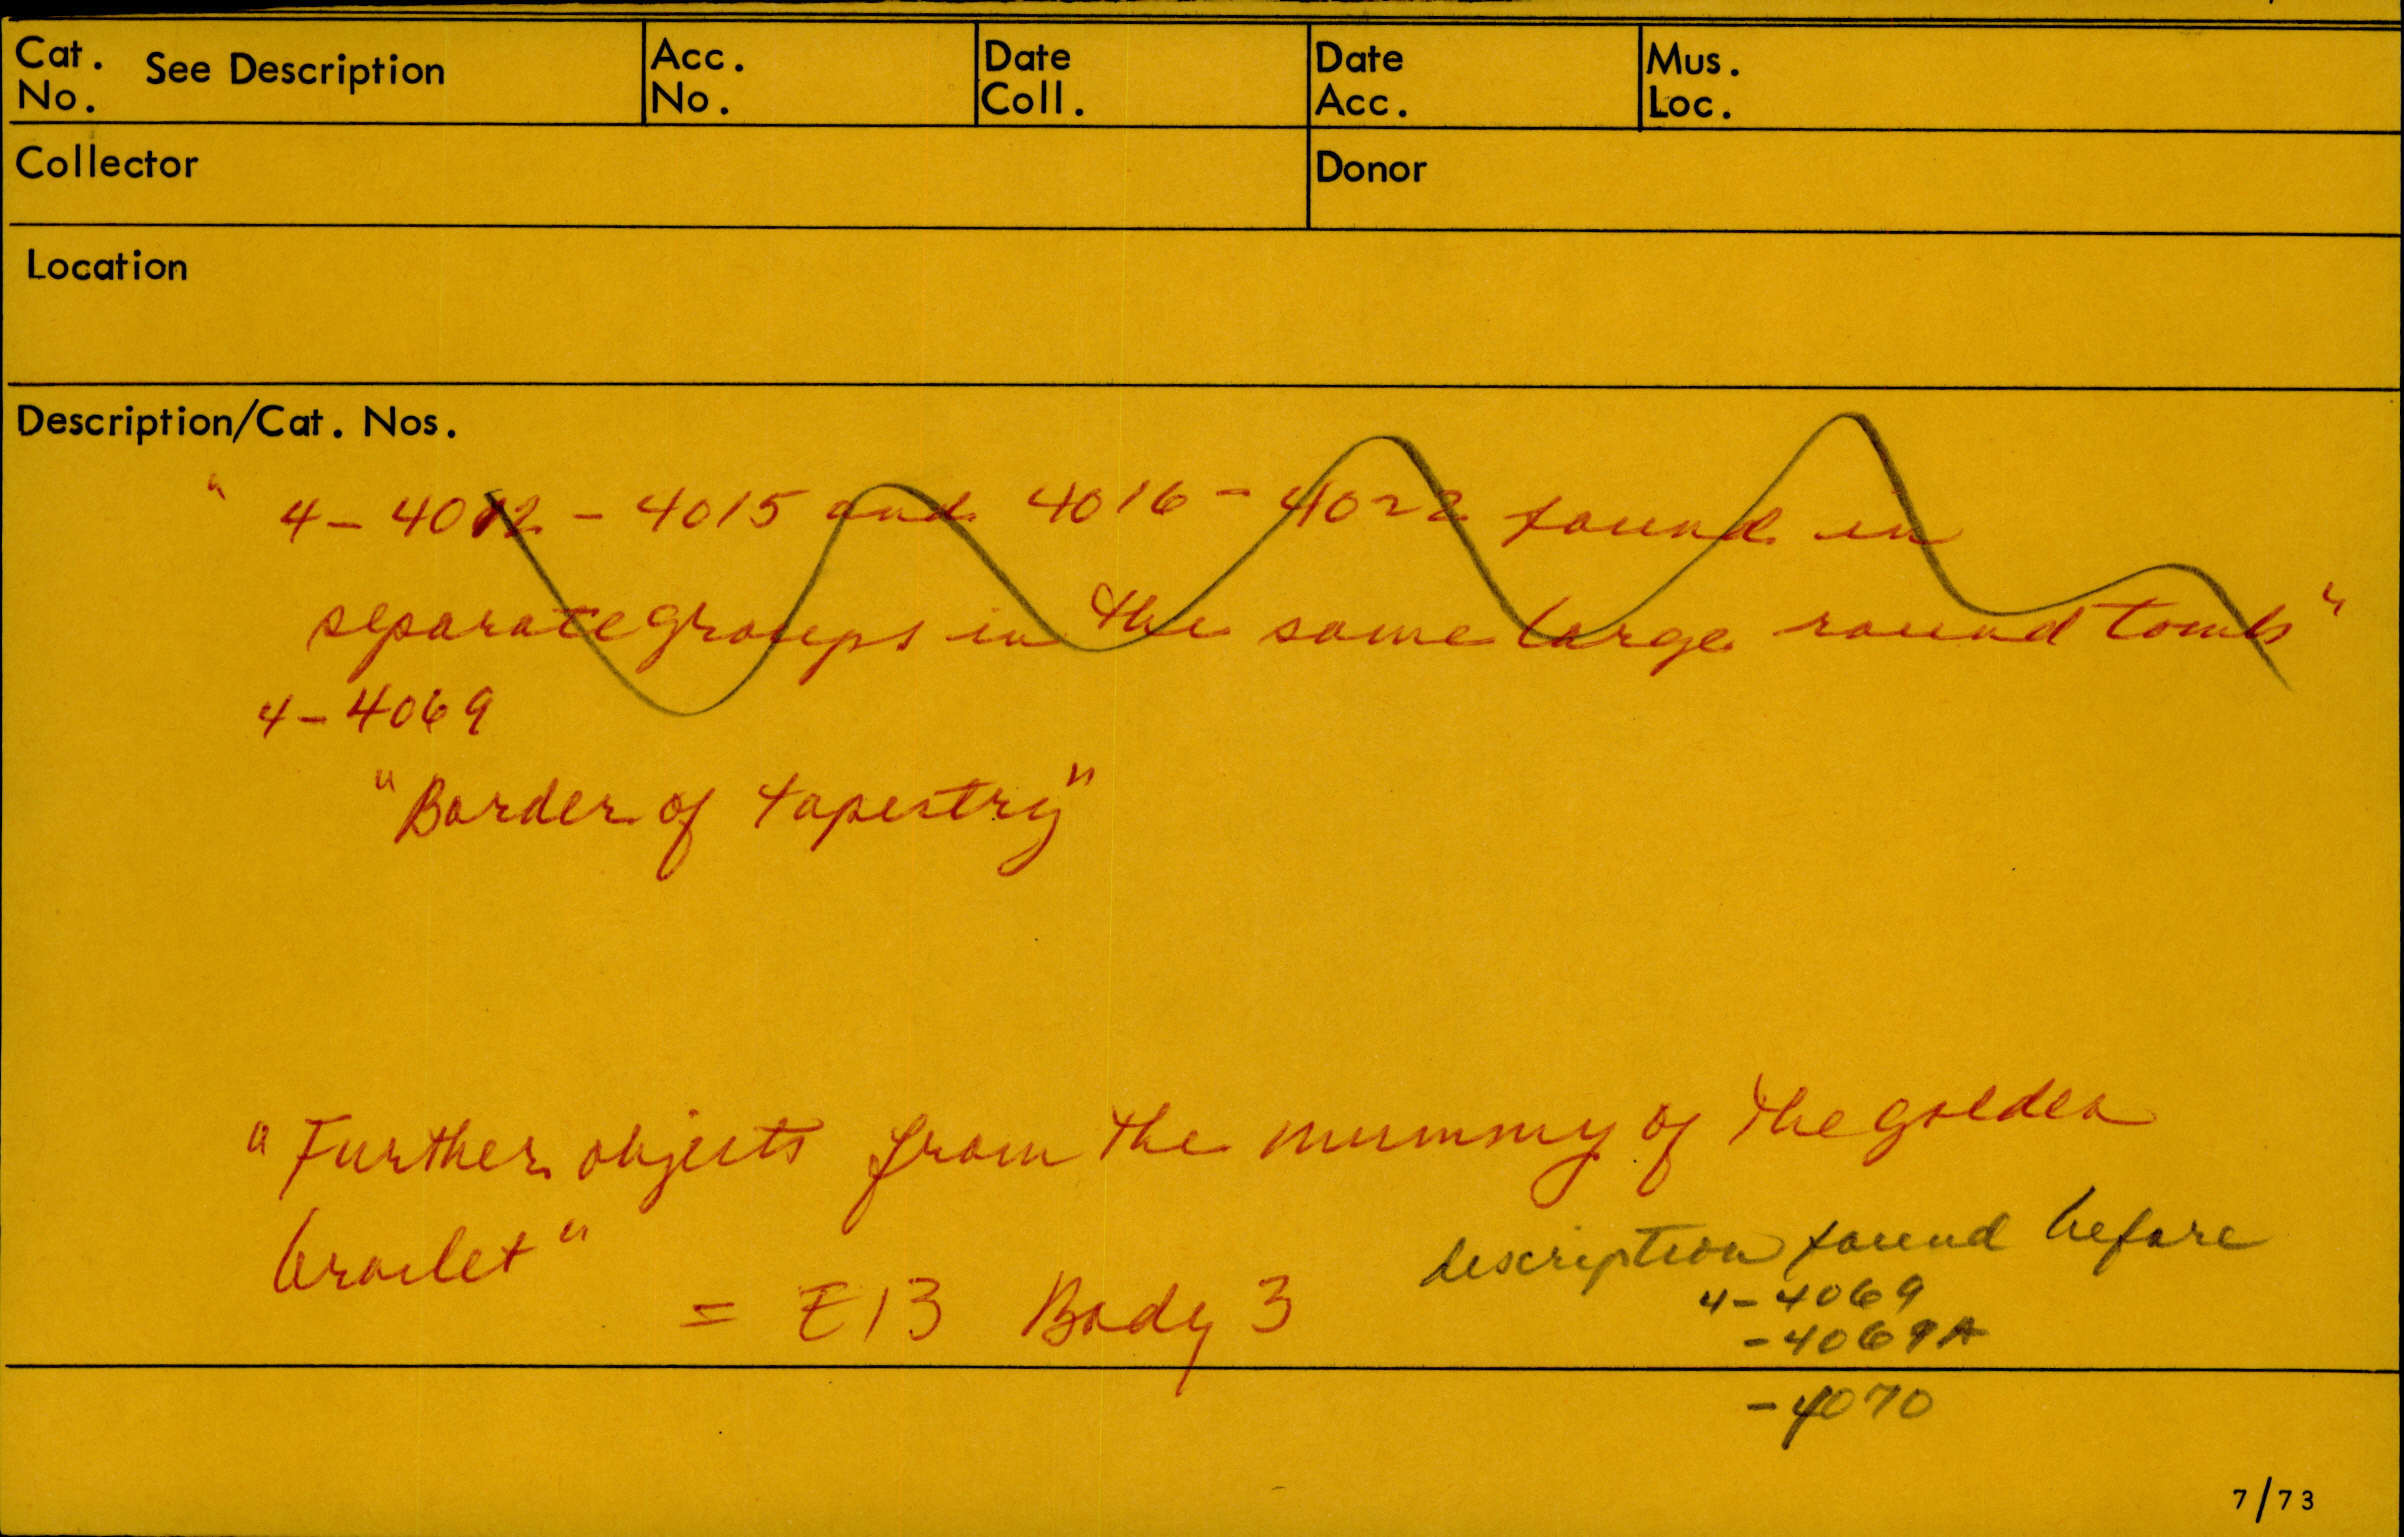 Cat. No. See Description
Acc. No.
Date Coll.
Date Acc.
Mus. Loc.
Collector
Donor
Location
Description/Cat. Nos.
" 4-4012 - 4015 and 4016 - 4022 found in
separate groups in the same large round tomb"
4-4069
"Border of tapestry"
"Further objects from the mummy of the golden
braclet"
= E13 Body 3
description found before
4-4069
-4069A
-4070
7/73